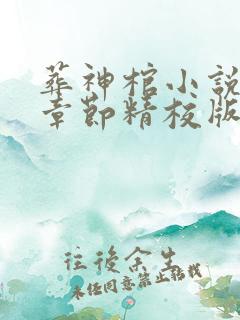 葬神棺小說
章節精校版
往後余生
未經同意禁止轉載